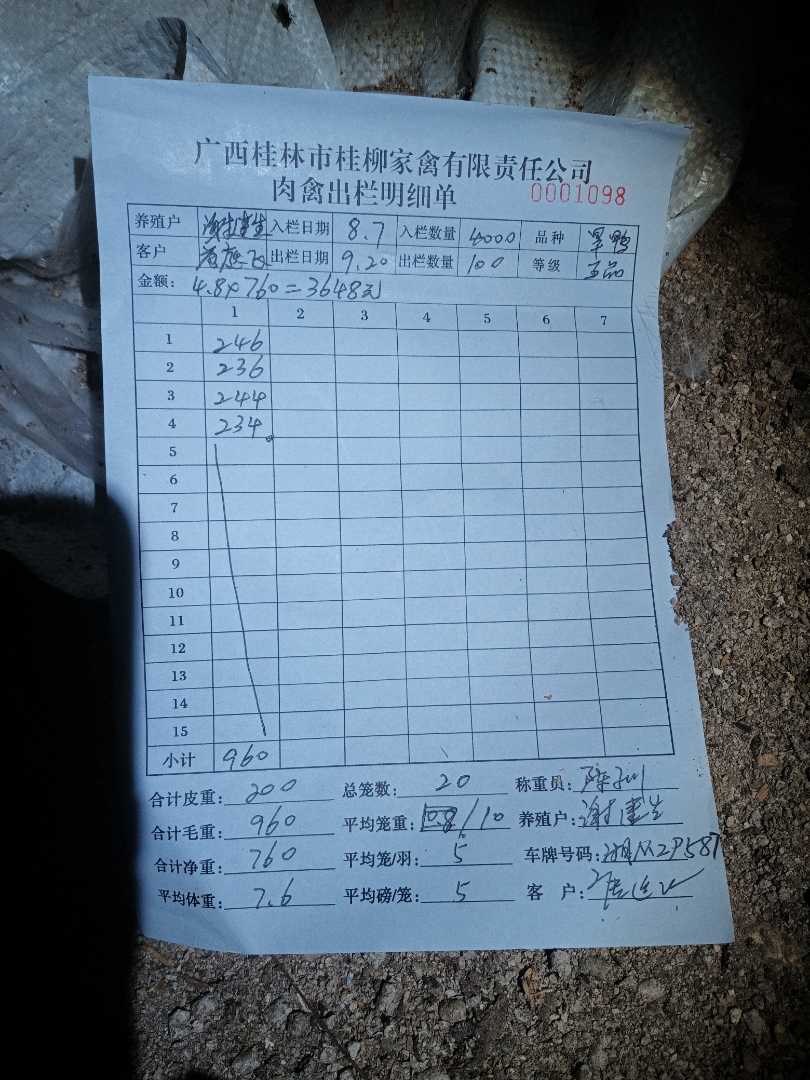 广西桂林市桂柳家禽有限责任公司
肉禽出栏明细单 0001098
养殖户 谢建生 入栏日期 8.7 入栏数量 4000 品种
客户 出栏日期 9.20 出栏数量 100 等级
金额: 4.8×760=3648元
1 2 3 4 5 6 7
1 246
2 236
3 244
4 234
5
6
7
8
9
10
11
12
13
14
15
小计 960
合计皮重: 200 总笼数: 20 称重员:
合计毛重: 960 平均笼重: /10 养殖户: 谢建生
合计净重: 760 平均笼/羽: 5 车牌号码:
平均体重: 7.6 平均磅/笼: 5 客 户: